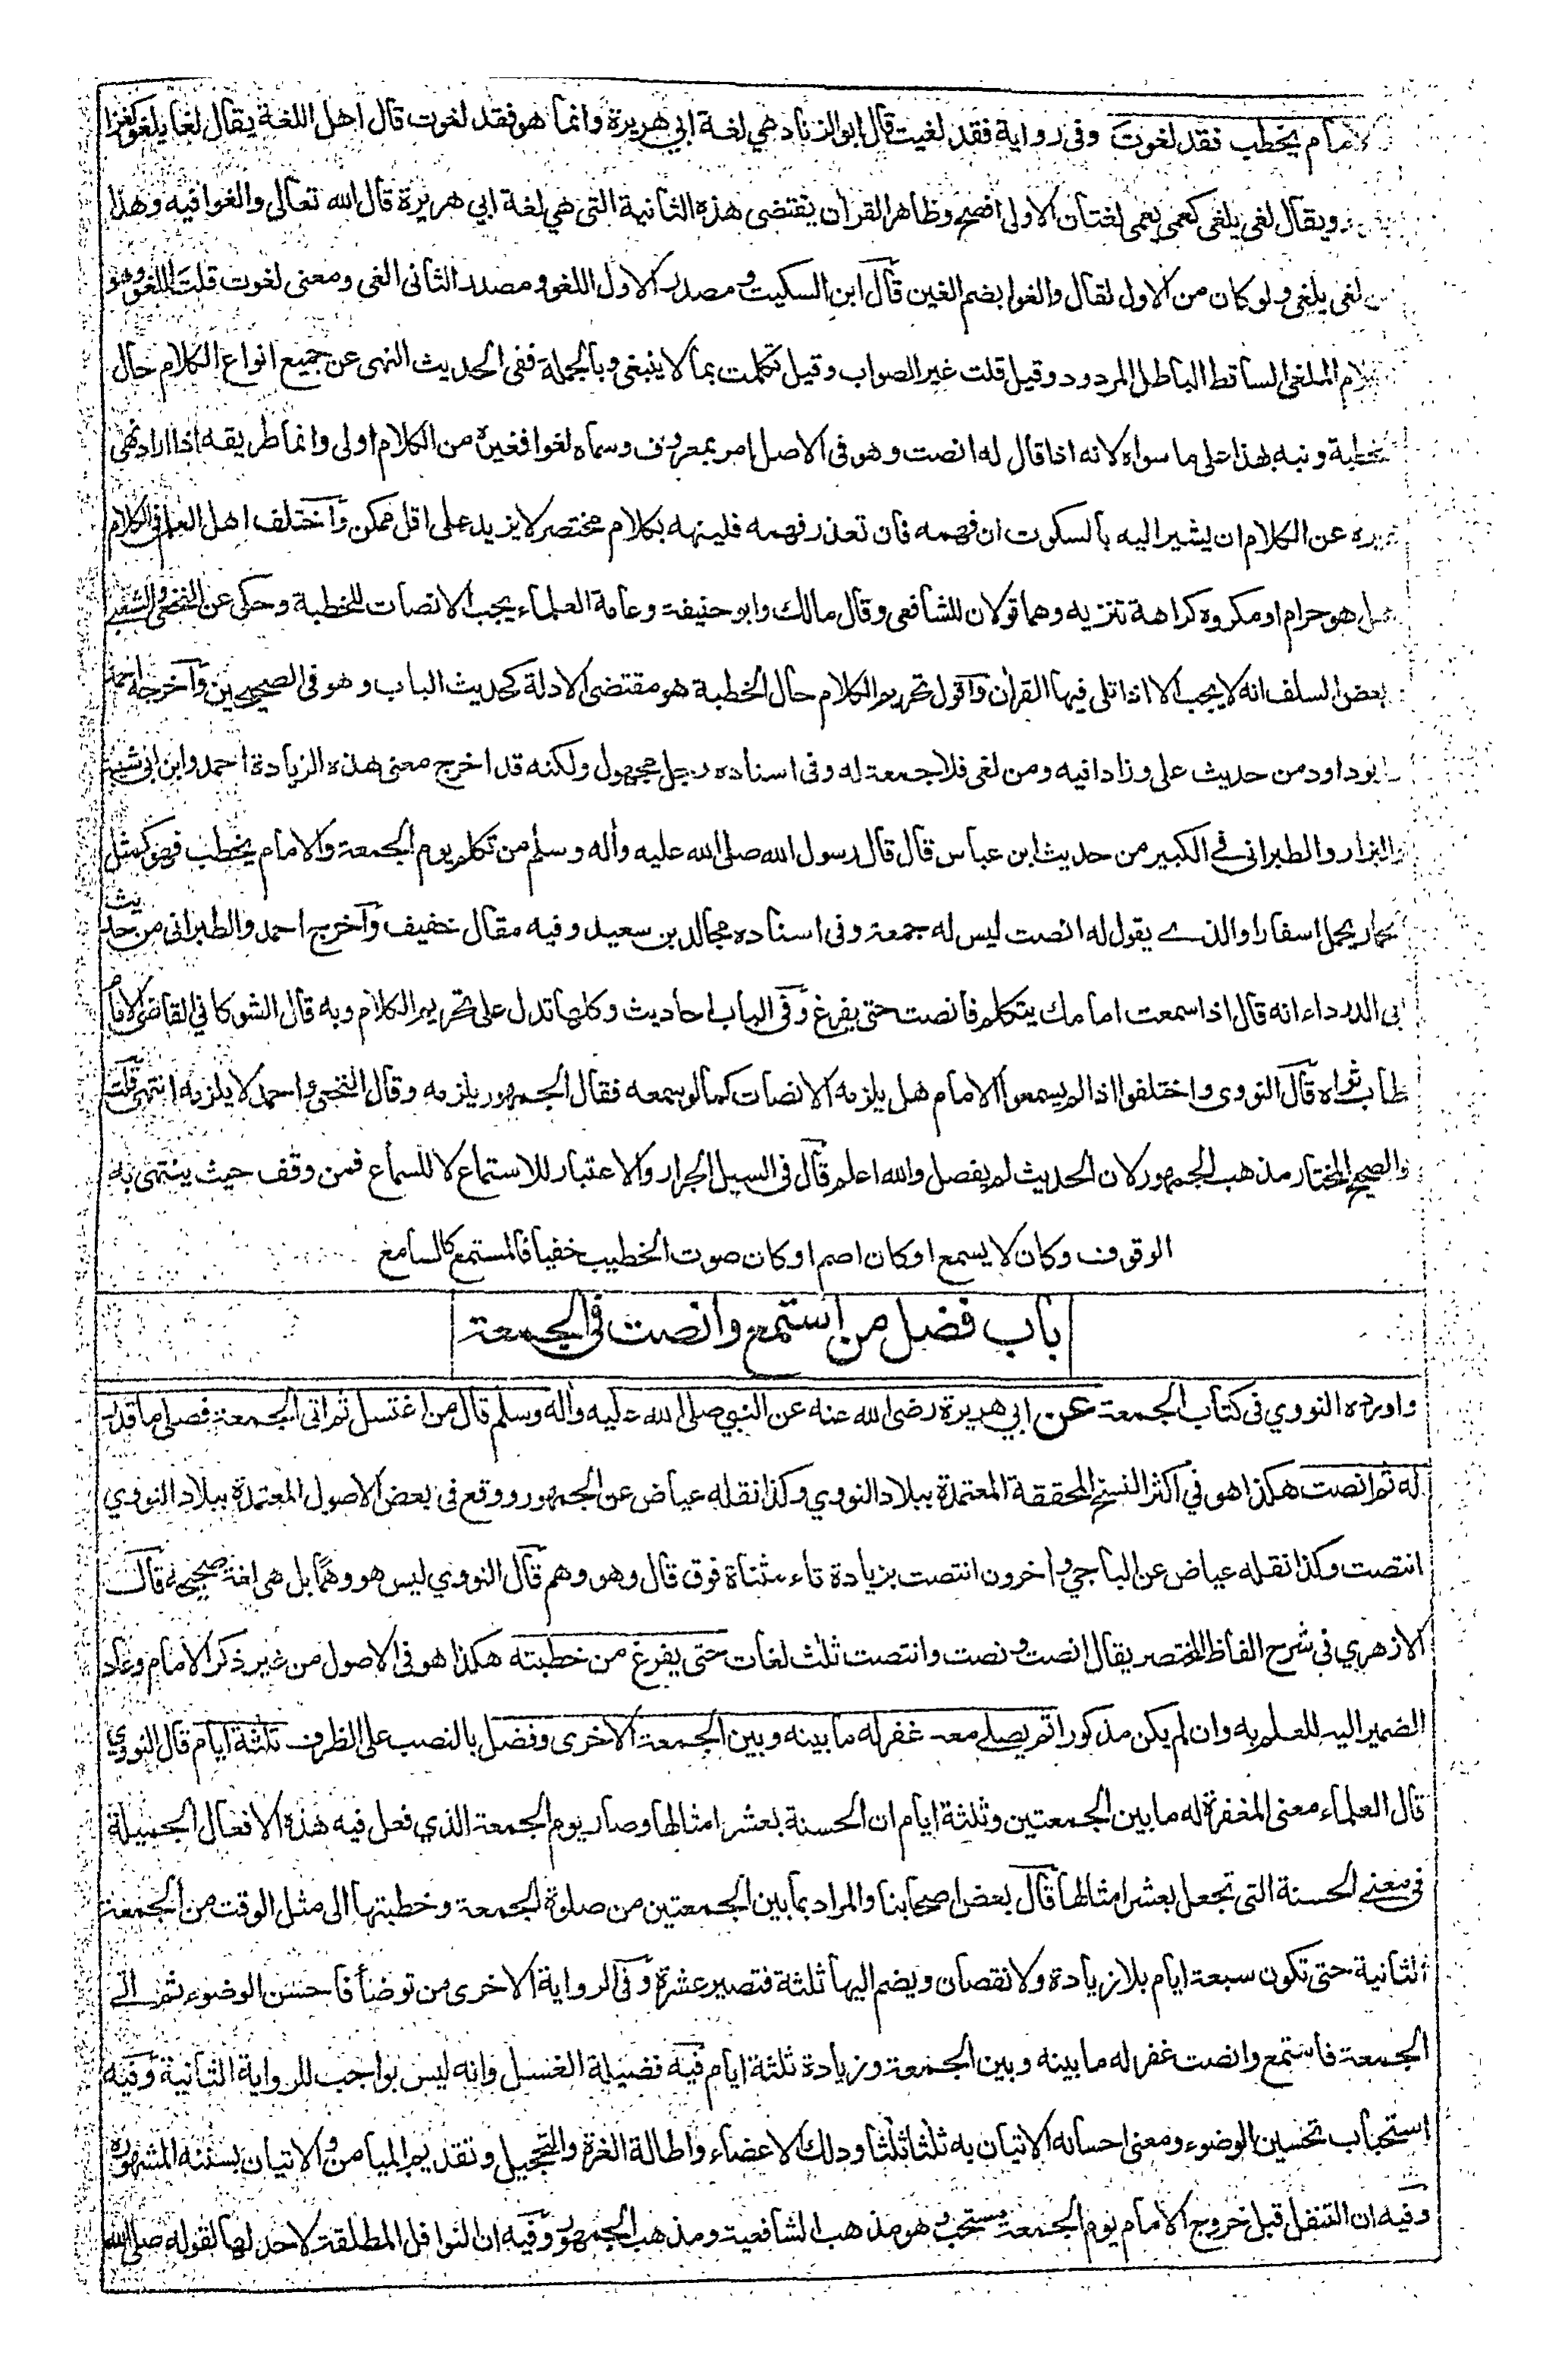 الامام يخطب فقد لغوت وفى رواية فقد لغيت قال ابو الزناد هي لغة ابي هريرة وانما هو فقد لغوت قال اهل اللغة يقال لغا يلغو كغزا
ويقال لغى يلغى كعمى يعمى لغتان الاولى افصح وظاهر القران يقتضى هذه الثانية التى هي لغة ابي هريرة قال الله تعالى والغوا فيه وهذا
من لغى يلغى ولو كان من الاول لقال والغوا بضم الغين قال ابن السكيت ومصدر الاول اللغو ومصدر الثانى الغى ومعنى لغوت قلت اللغو وهو
الكلام الملغى الساقط الباطل المردود وقيل قلت غير الصواب وقيل تكلمت بما لا ينبغى وبالجملة ففى الحديث النهى عن جميع انواع الكلام حال
الخطبة ونبه بهذا على ما سواه لانه اذا قال له انصت وهو فى الاصل امر بمعروف وسماه لغوا فغيره من الكلام اولى وانما طريقه اذا اراد نهى
غيره عن الكلام ان يشير اليه بالسكوت ان فهمه فان تعذر فهمه فلينهه بكلام مختصر لا يزيد على اقل ممكن واختلف اهل العلم فى الكلام
هل هو حرام او مكروه كراهة تنزيه وهما قولان للشافعى وقال مالك وابو حنيفة وعامة العلماء يجب الانصات للخطبة وحكى عن النخعى والشعبے
وبعض السلف انه لا يجب الا اذا تلى فيها القران واقول تحريم الكلام حال الخطبة هو مقتضى الادلة كحديث الباب وهو فى الصحيحين واخرجه احمد
وابوداود من حديث على وزادا فيه ومن لغى فلا جمعة له وفى اسناده رجل مجهول ولكنه قد اخرج معنى هذه الزيادة احمد وابن ابى شيبة
والبزار والطبرانى فے الكبير من حديث ابن عباس قال قال رسول الله صلى الله عليه وأله وسلم من تكلم يوم الجمعة والامام يخطب فهو كمثل
الحمار يحمل اسفارا والذے يقول له انصت ليس له جمعة وفى اسناده مجالد بن سعيد وفيه مقال خفيف واخرج احمد والطبرانى من حديث
ابى الدرداء انه قال اذا سمعت امامك يتكلم فانصت حتى يفرغ وفى الباب احاديث وكلها تدل على تحريم الكلام وبه قال الشوكاني لقاضى الامام
طاب ثواه قال النووى واختلفوا اذا لم يسمعوا الامام هل يلزمه الانصات كما لو يسمعه فقال الجمهور يلزمه وقال النخعى واحمد لا يلزمه انتهى قلت
والصحيح المختار مذهب الجمهور لان الحديث لم يفصل والله اعلم قال فى السيل الجرار والاعتبار للاستماع لا للسماع فمن وقف حيث ينتهى به
الوقوف وكان لا يسمع او كان اصم او كان صوت الخطيب خفيا فالمستمع كالسامع
باب فضل من استمع وانصت فى الجمعة
واورده النووي فى كتاب الجمعة عن ابي هريرة رضى الله عنه عن النبي صلى الله عليه وأله وسلم قال من اغتسل ثم اتى الجمعة فصلى ما قدر
له ثم انصت هكذا هو في اكثر النسخ المحققة المعتمدة ببلاد النووي وكذا نقله عياض عن الجمهور ووقع فى بعض الاصول المعتمدة ببلاد النووي
انتصت وكذا نقله عياض عن الباجي واخرون انتصت بزيادة تاء مثناة فوق قال وهو وهم قال النووي ليس هو وهمًا بل هى لغة صحيحة قال
الازهري فى شرح الفاظ المختصر يقال انصت ونصت وانتصت ثلث لغات حتى يفرغ من خطبته هكذا هو فى الاصول من غير ذكر الامام وعاد
الضمير اليه للعلم به وان لم يكن مذكورا ثم يصلے معه غفر له ما بينه وبين الجمعة الاخرى وفضل بالنصب على الظرف ثلثة ايام قال النووي
قال العلماء معنى المغفرة له ما بين الجمعتين وثلثة ايام ان الحسنة بعشر امثالها وصار يوم الجمعة الذي فعل فيه هذه الافعال الجميلة
فى معنے الحسنة التى تجعل بعشر امثالها قال بعض اصحابنا والمراد بما بين الجمعتين من صلوة الجمعة وخطبتها الى مثل الوقت من الجمعة
الثانية حتى تكون سبعة ايام بلا زيادة ولا نقصان ويضم اليها ثلثة فتصير عشرة وفى الرواية الاخرى من توضأ فاحسن الوضوء ثم اتے
الجمعة فاستمع وانصت غفر له ما بينه وبين الجمعة وزيادة ثلثة ايام فيه فضيلة الغسل وانه ليس بواجب للرواية الثانية وفيه
استحباب تحسين الوضوء ومعنى احسانه الاتيان به ثلثا ثلثا ودلك الاعضاء واطالة الغرة والتحجيل وتقديم الميامن والاتيان بسننه المشهورة
وفيه ان التنفل قبل خروج الامام يوم الجمعة مستحب وهو مذهب الشافعية ومذهب الجمهور وفيه ان النوافل المطلقة لا حد لها لقوله صلى الله